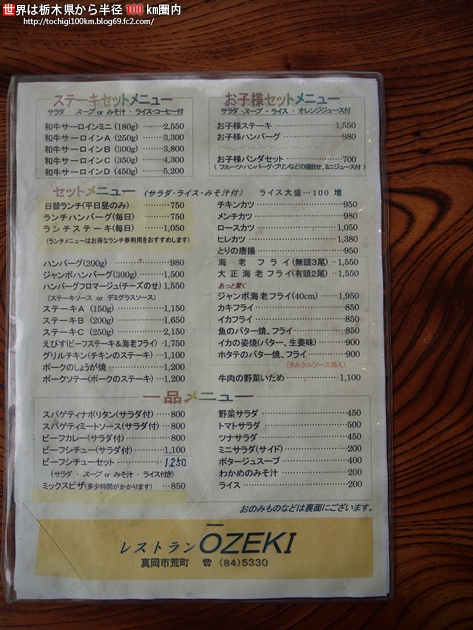 世界は栃木県から半径 100 km圏内
http://tochigi100km.blog69.fc2.com/
ステーキセットメニュー
サラダ ・スープ or みそ汁 ・ライス・コーヒー付
和牛サーロインミニ (180g) ……… 2,550
和牛サーロインA (250g) ……… 3,300
和牛サーロインB (300g) ……… 3,800
和牛サーロインC (350g) ……… 4,300
和牛サーロインD (450g) ……… 5,200
お子様セットメニュー
サラダ・スープ・ライス ・ オレンジジュース付
お子様ステーキ ……… 1,550
お子様ハンバーグ ……… 980
お子様パンダセット ……… 700
(フルーツ・ハンバーグ・プリンなどの盛合せ、ミニジュース付)
セットメニュー (サラダ・ライス・みそ汁付) ライス大盛…100 増
日替ランチ(平日昼のみ) ……… 750
ランチハンバーグ(毎日) ……… 750
ランチステーキ(毎日) ……… 1,050
(ランチメニューはお得なランチ券利用をおすすめします)
ハンバーグ(200g) ……… 980
ジャンボハンバーグ(300g) ……… 1,500
ハンバーグフロマージュ(チーズのせ) 1,150
(ステーキソース or デミグラスソース)
ステーキA (150g) ……… 1,150
ステーキB (200g) ……… 1,650
ステーキC (250g) ……… 2,150
えびす(ビーフステーキ&海老フライ) 1,750
グリルチキン(チキンのステーキ) … 1,100
ポークのしょうが焼 ……… 1,200
ポークソテー(ポークのステーキ) … 1,200
チキンカツ ……… 950
メンチカツ ……… 980
ロースカツ ……… 1,050
ヒレカツ ……… 1,380
とりの唐揚 ……… 950
海 老 フ ラ イ (無頭3尾) … 1,550
大正海老フライ(有頭2尾) … 1,550
あっと驚く
ジャンボ海老フライ(40cm) … 1,950
カキフライ ……… 850
イカフライ ……… 850
魚のバター焼、フライ ……… 850
イカの姿焼(バター、生姜味) … 900
ホタテのバター焼、フライ ……… 900
(タルタルソース添え)
牛肉の野菜いため ……… 1,100
一品メニュー
スパゲティナポリタン(サラダ付) …… 800
スパゲティミートソース(サラダ付) … 800
ビーフカレー(サラダ付) ……… 800
ビーフシチュー(サラダ付) ……… 1,100
ビーフシチューセット ……… 1,250
(サラダ ・ スープ or みそ汁 ・ ライス付き)
ミックスピザ(多少時間がかかります) … 850
野菜サラダ ……… 450
トマトサラダ ……… 500
ツナサラダ ……… 450
ミニサラダ(サイド) ……… 200
ポタージュスープ ……… 400
わかめのみそ汁 ……… 200
ライス ……… 200
おのみものなどは裏面にございます。
レストラン OZEKI
真岡市荒町 ☎ (84)5330